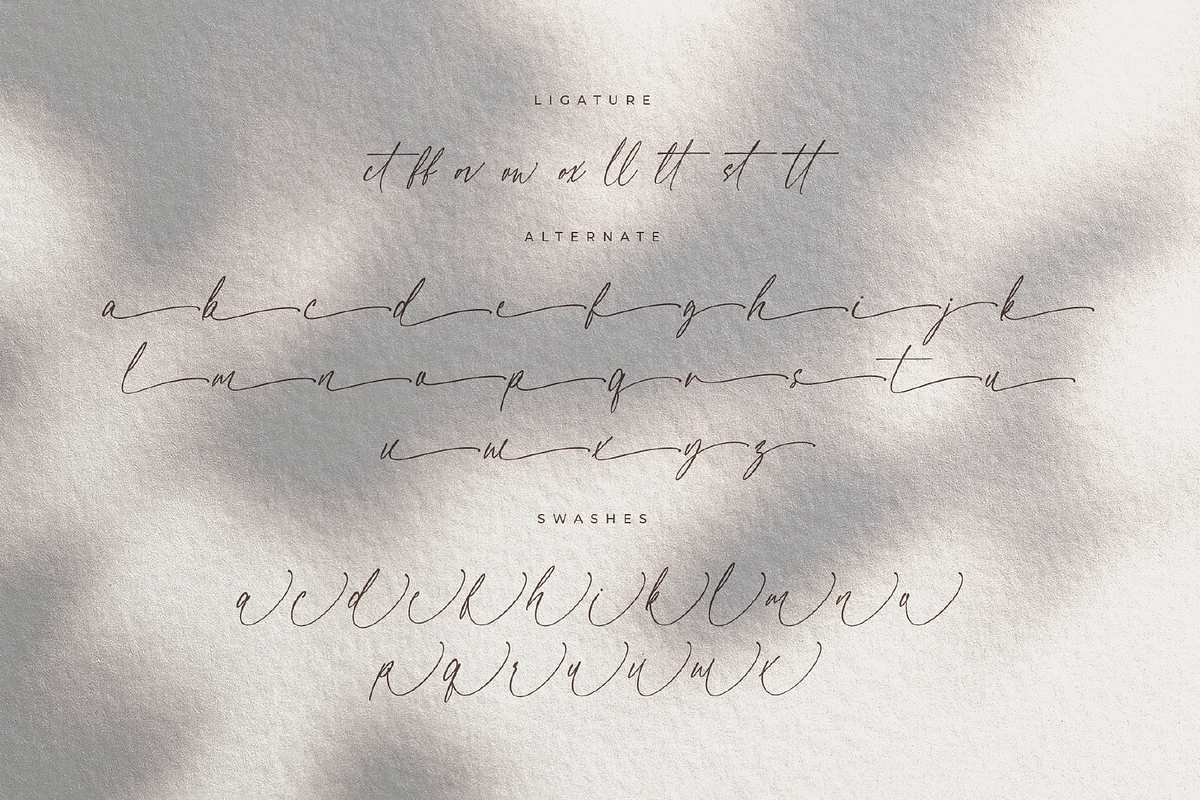 LIGATURE
ct ff ov ow ox ll lt st tt
ALTERNATE
a b c d e f g h i j k
l m n o p q r s t u
v w x y z
SWASHES
a c d e f h i k l m n o
p q r u v w x